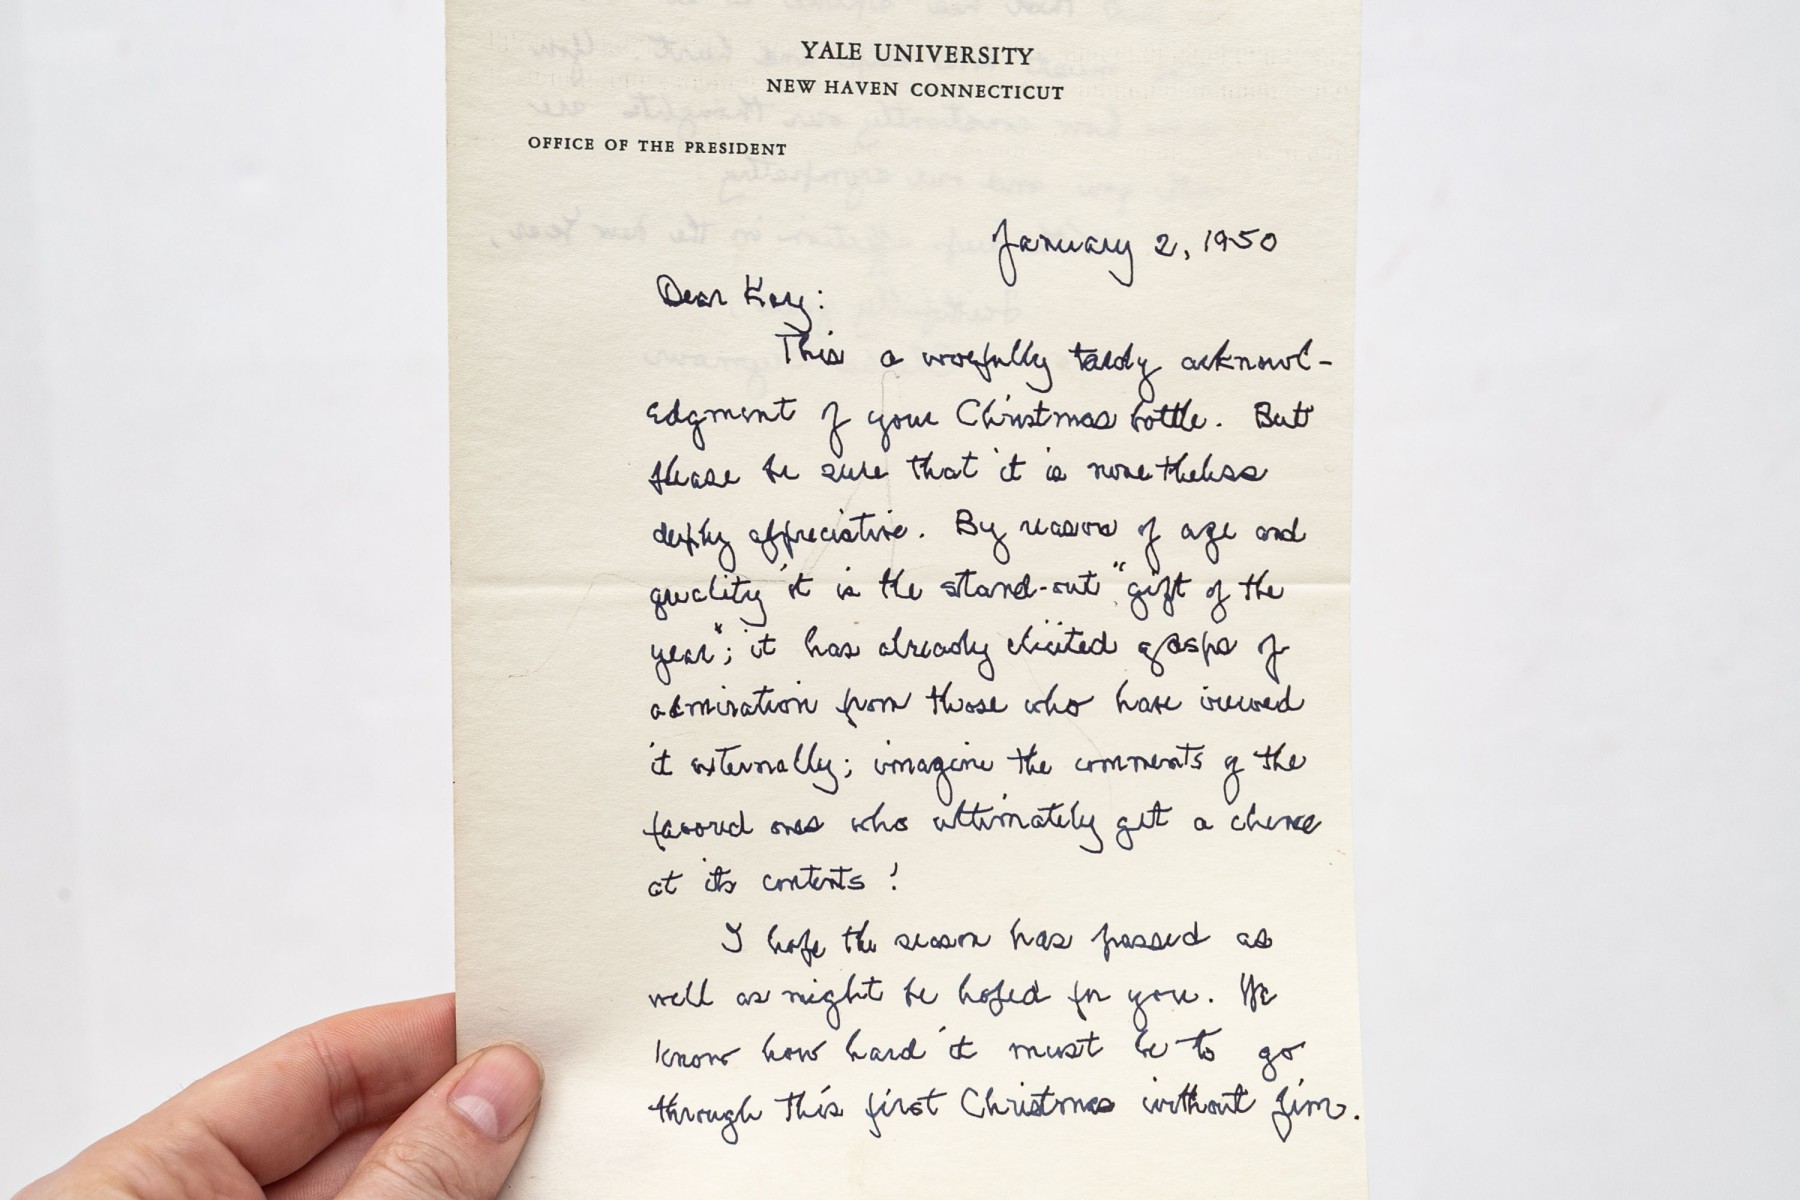 YALE UNIVERSITY
NEW HAVEN CONNECTICUT
OFFICE OF THE PRESIDENT
January 2, 1950
Dear Kay:
This a woefully tardy acknowl-
edgment of your Christmas bottle. But
please be sure that it is nonetheless
deeply appreciative. By reason of age and
quality it is the stand-out "gift of the
year"; it has already elicited gasps of
admiration from those who have viewed
it externally; imagine the comments of the
favored ones who ultimately get a chance
at its contents!
I hope the season has passed as
well as might be hoped for you. We
know how hard it must be to go
through this first Christmas without Jim.